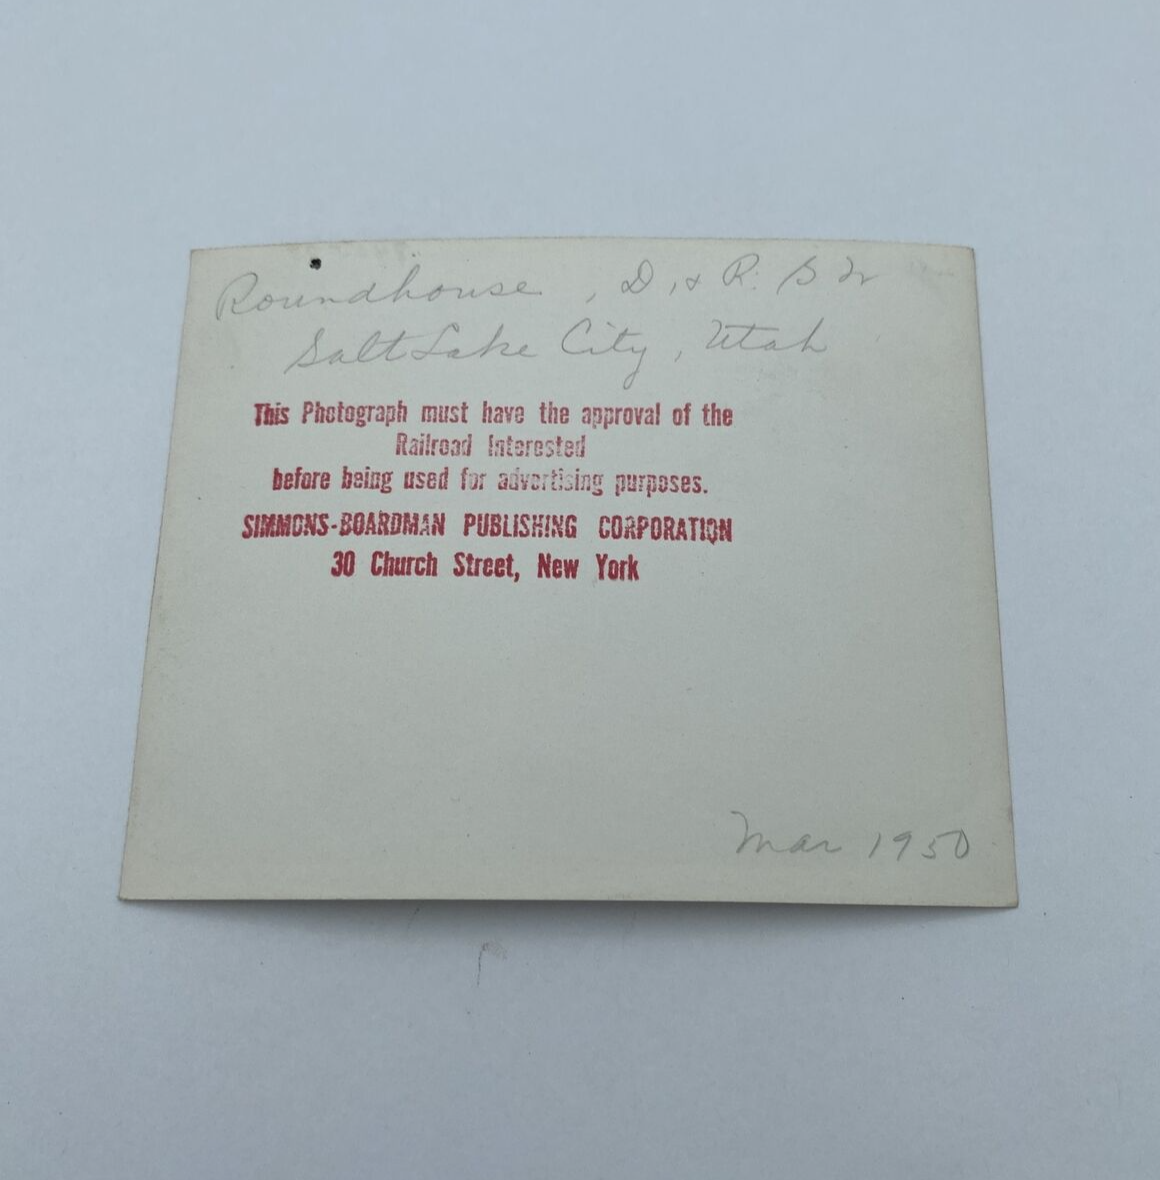 Roundhouse, D, & R. G W
Salt Lake City, Utah
This Photograph must have the approval of the
Railroad Interested
before being used for advertising purposes.
SIMMONS-BOARDMAN PUBLISHING CORPORATION
30 Church Street, New York
Mar 1950